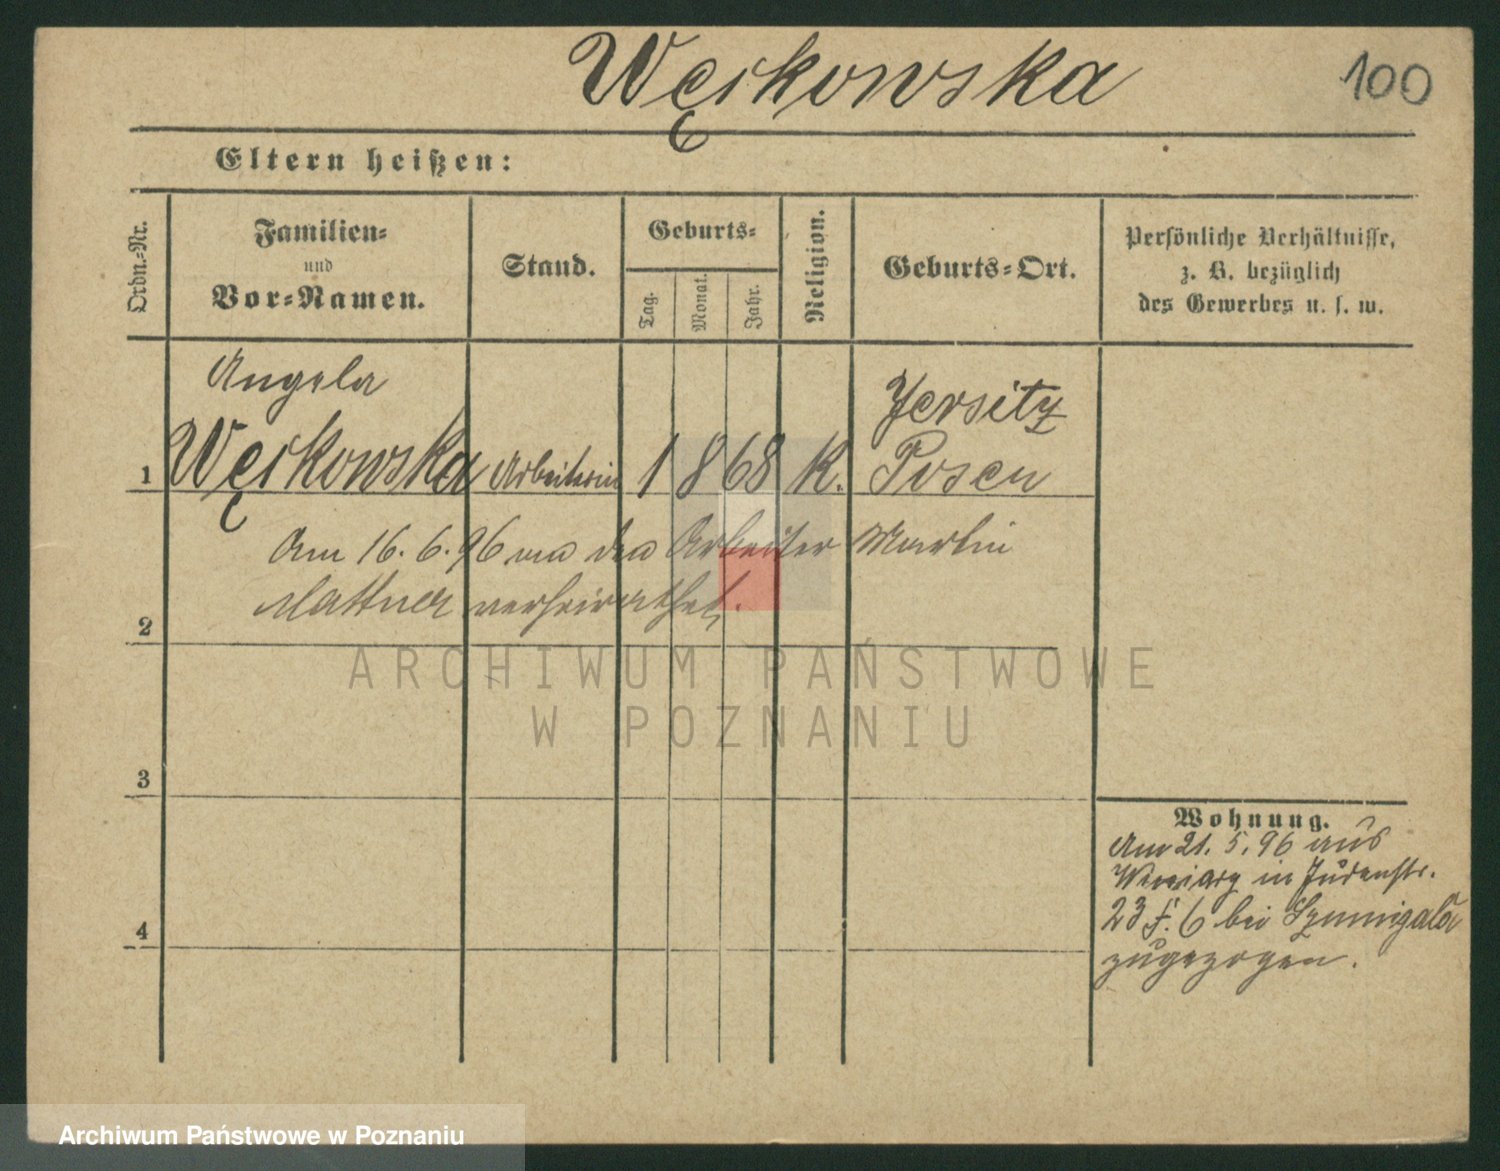 Węskowska
100
Eltern heißen:
Ordn.-Nr.
Familien-
und
Vor-Namen.
Stand.
Geburts-
Tag.
Monat.
Jahr.
Religion.
Geburts-Ort.
Persönliche Verhältnisse,
z. B. bezüglich
des Gewerbes u. s. w.
Angela
Jersitz
1 Węskowska Arbeiterin 1 8 68 K. Posen
Am 16. 6. 96 an den Arbeiter Martin
Mattner verheirathet.
2
ARCHIWUM PAŃSTWOWE
W POZNANIU
3
Wohnung.
Am 21. 5. 96 aus
in Judenstr.
4
23 bei
zugezogen.
Archiwum Państwowe w Poznaniu